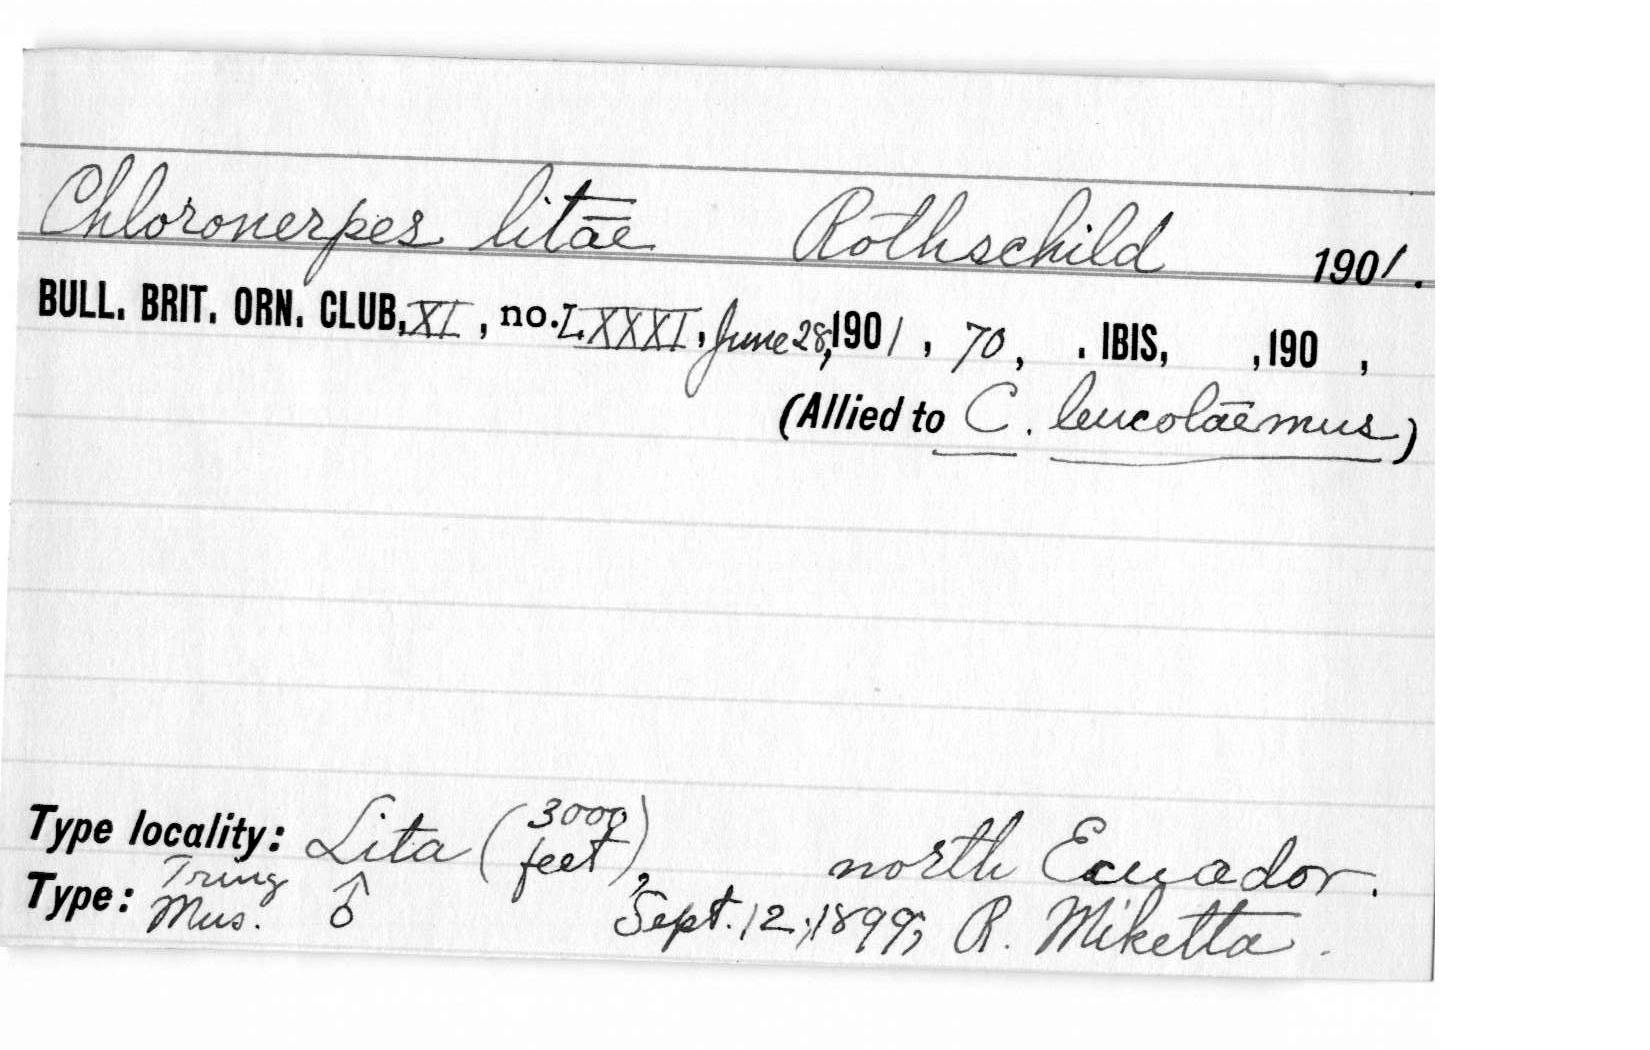 Chloronerpes litae Rothschild 1901.
BULL. BRIT. ORN. CLUB, XI, no. LXXXI, June 28, 1901, 70, . IBIS, , 190 ,
(Allied to C. leucolaemus)
Type locality: Lita (3000 feet), north Ecuador.
Type: Tring Mus. ♂ Sept. 12, 1899; R. Miketta.